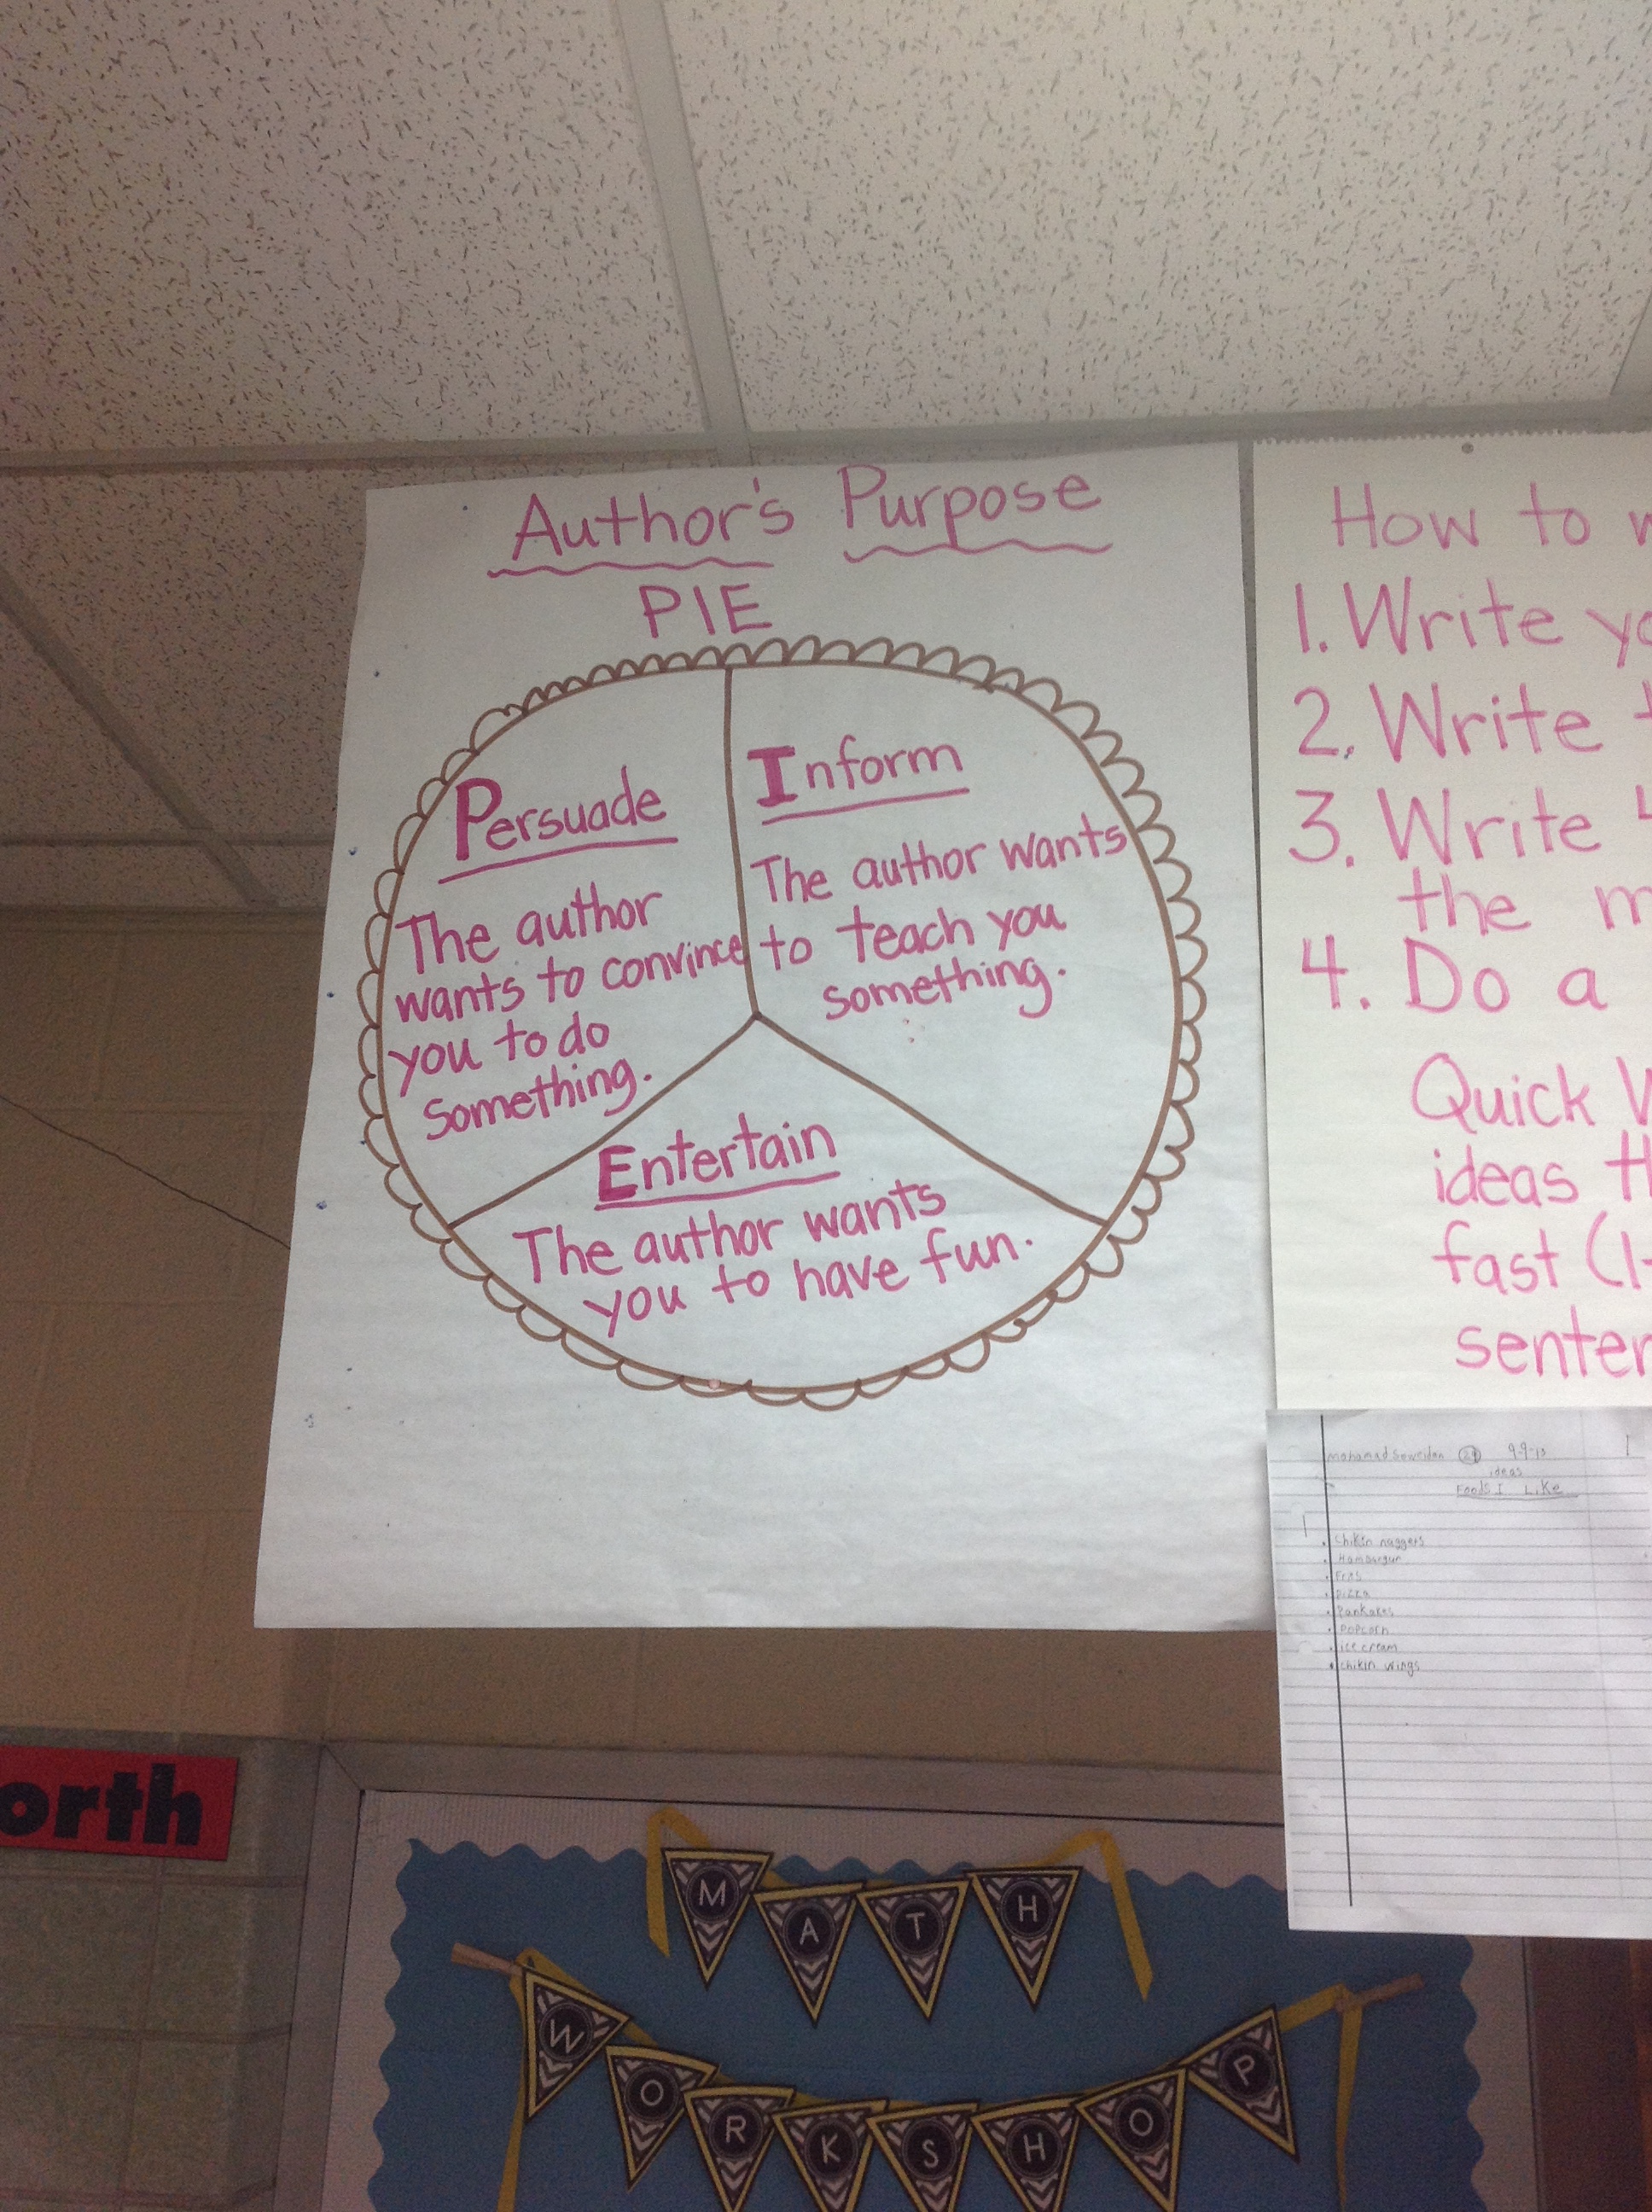 Author's Purpose
PIE
Persuade
The author
wants to convince
you to do
something.
Inform
The author wants
to teach you
something.
Entertain
The author wants
you to have fun.
How to
1. Write
2. Write
3. Write
the
4. Do a
Quick
ideas
fast (1-
senten
9-9-13
ideas
Foods I Like
Chikin naggers
Hambargur
Pizza
Pankakes
Popcorn
ice cream
chikin wings
orth
MATH
WORKSHOP